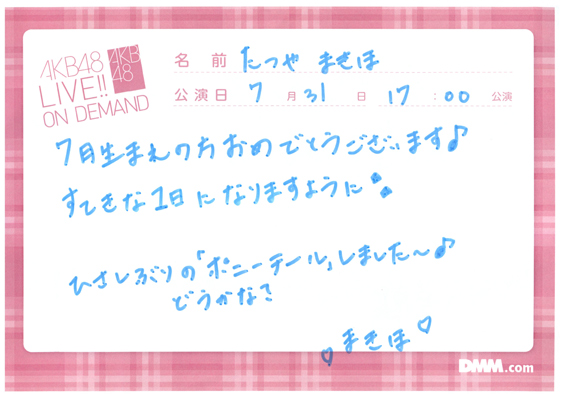 AKB48
LIVE!!
ON DEMAND
AKB
48
名 前 たつや まきほ
公演日 7 月 31 日 17 : 00 公演
7月生まれの方おめでとうございます♪
すてきな1日になりますように
ひさしぶりの「ポニーテール」しました〜♪
どうかな?
♡ まきほ ♡
DMM.com